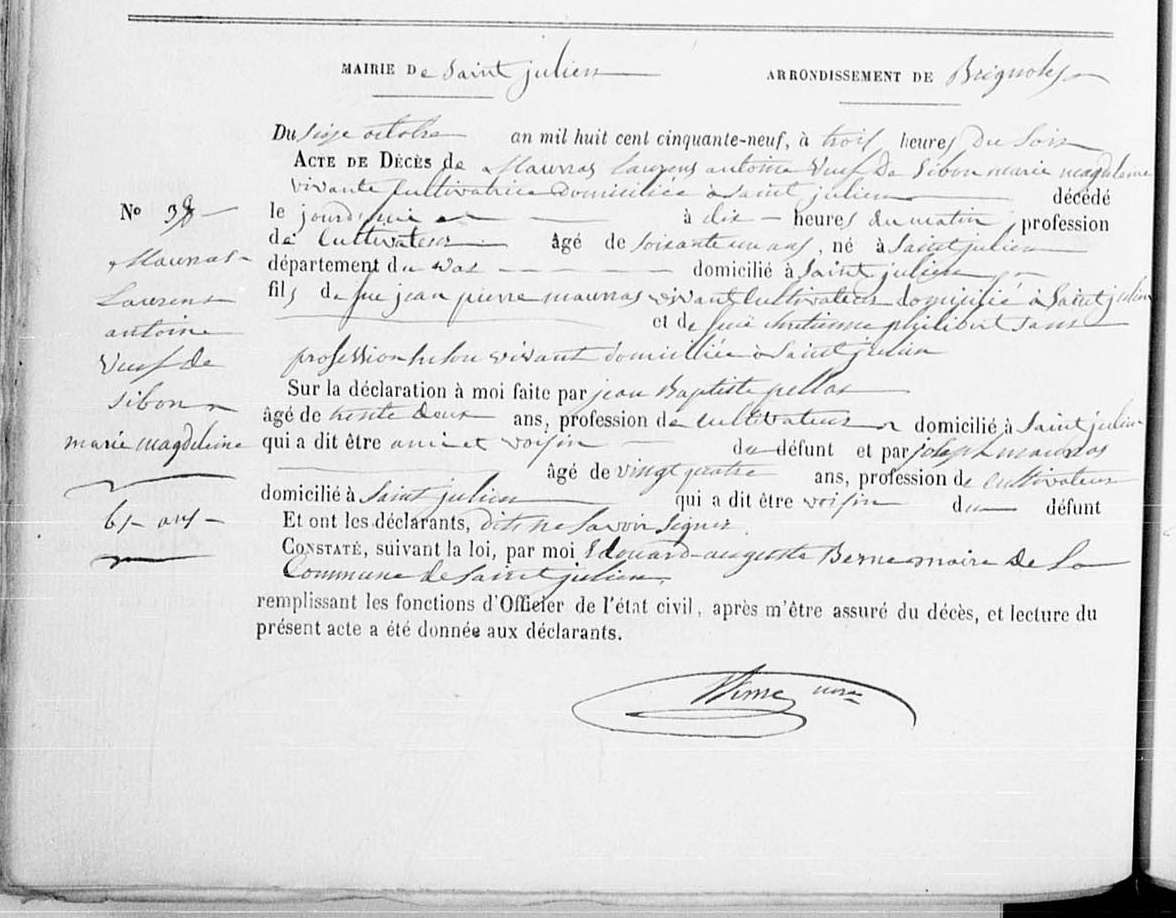 MAIRIE De Saint julien ARRONDISSEMENT DE Brignoles
Du seize octobre an mil huit cent cinquante-neuf, à trois heures du Soir
ACTE DE DÉCÈS de Maurras Laurens antoine Veuf De Sibon marie magdeleine
vivante Cultivatrice domiciliée à Saint julien décédé
le jourdhui à dix heures du matin, profession
de Cultivateur âgé de soixante un ans, né à Saint julien
département du var domicilié à Saint julien
fils de feu jean pierre maurras vivant Cultivateur domicilié à Saint julien
et de feue chretienne philibert sans
profession vivant domiciliée à Saint julien
Sur la déclaration à moi faite par jean Baptiste pellas
âgé de trente deux ans, profession de cultivateur domicilié à Saint julien
qui a dit être ami et voisin du défunt et par joseph maurras
âgé de vingt quatre ans, profession de cultivateur
domicilié à Saint julien qui a dit être voisin du défunt
Et ont les déclarants, dit ne savoir signer
CONSTATÉ, suivant la loi, par moi Edouard auguste Berne maire De La
Commune de Saint julien
remplissant les fonctions d'Officier de l'état civil, après m'être assuré du décès, et lecture du
présent acte a été donnée aux déclarants.
No 38
Maurras
Laurens
antoine
Veuf de
Sibon
marie magdeleine
61 ans